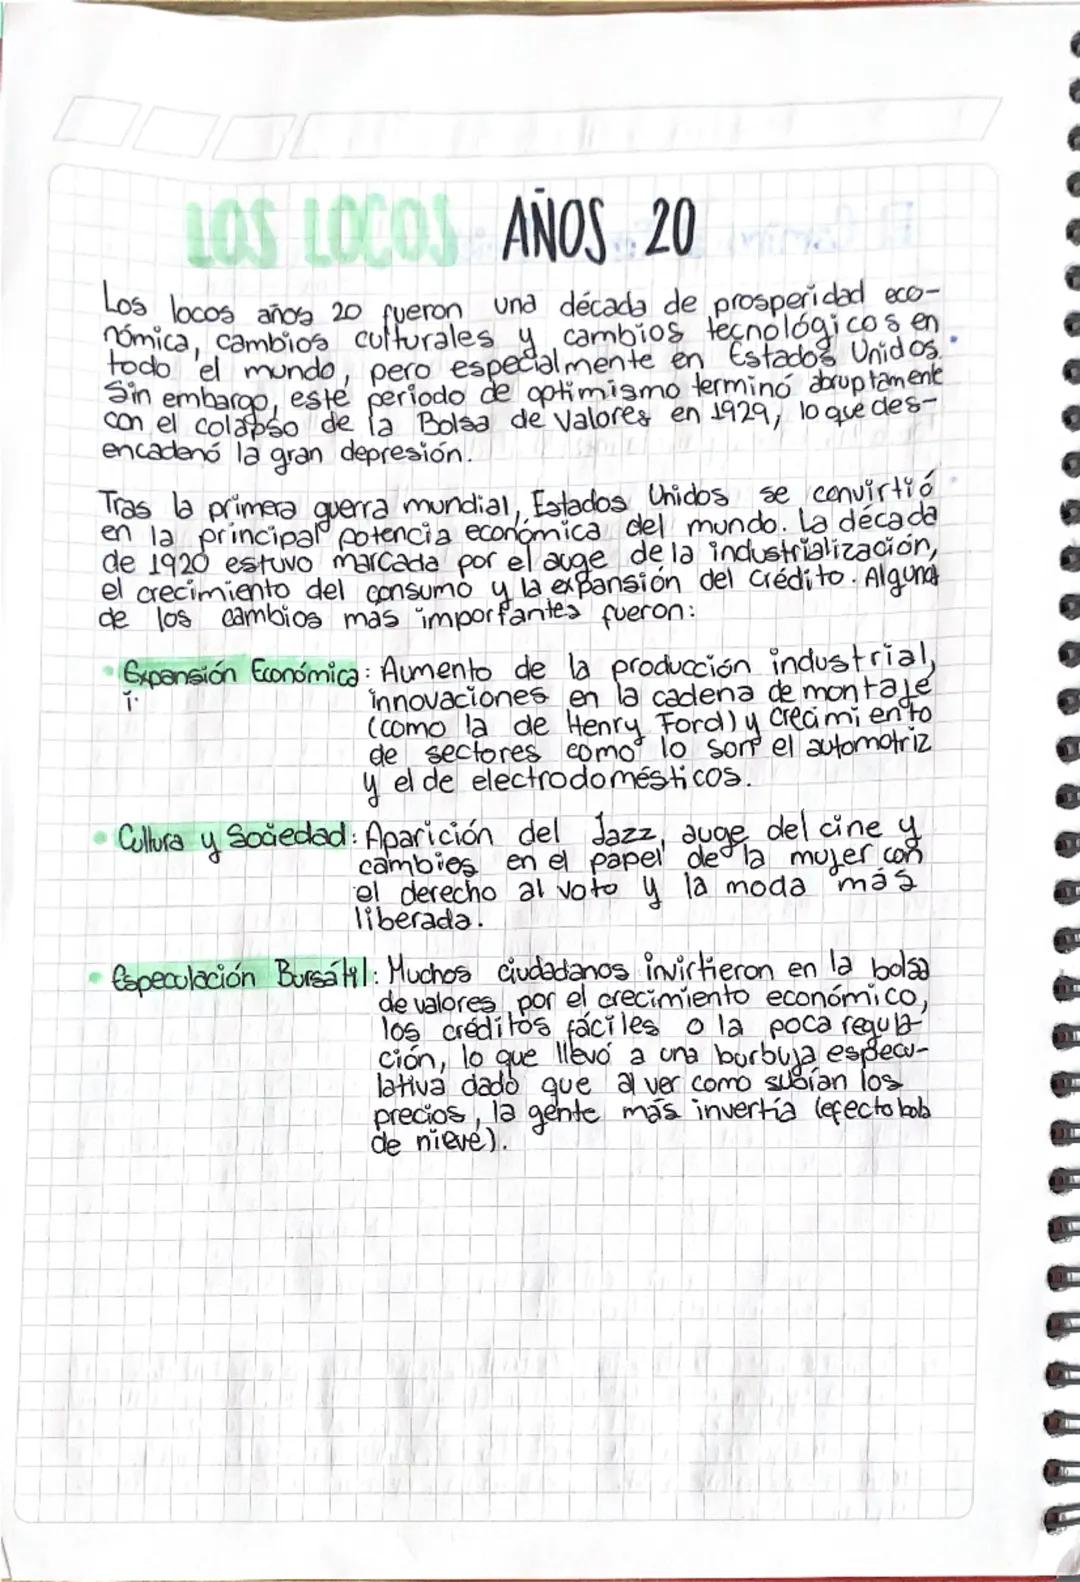 LOS LOCOS AÑOS 20
Los locos años 20 fueron una década de prosperidad eco-
nómica, cambios culturales y cambios tecnológicos en
todo el mundo, pero especialmente en Estados Unidos.
Sin embargo, este periodo de optimismo terminó abruptamente
con el colapso de la Bolsa de Valores en 1929, lo que des-
encadenó la gran depresión.
Tras la primera guerra mundial, Estados Unidos se convirtió
en la principal potencia económica del mundo. La década
de 1920 estuvo marcada por el auge de la industrialización,
el crecimiento del consumo y la expansión del crédito. Algunos
de los cambios más importantes fueron:
• Expansión Económica: Aumento de la producción industrial,
innovaciones en la cadena de montaje
(como la de Henry Ford) y crecimiento
de sectores como lo son el automotriz
y el de electrodomésticos.
• Cultura y Sociedad: Aparición del Jazz, auge del cine y
cambios en el papel de la mujer con
el derecho al voto y la moda más
liberada.
• Especulación Bursátil: Muchos ciudadanos invirtieron en la bolsa
de valores por el crecimiento económico,
los créditos fáciles o la poca regula-
ción, lo que llevó a una burbuja especu-
lativa dado que al ver como subían los
precios, la gente más invertía (efecto bola
de nieve).